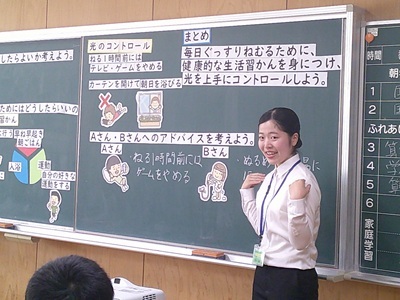 したらよいか考えよう。
光のコントロール
ねる1時間前には
テレビ・ゲームをやめる
カーテンを開けて朝日を浴びる
まとめ
毎日ぐっすりねむるために、
健康的な生活習かんを身につけ、
光を上手にコントロールしよう。
ためにはどうしたらいいの
習かん
早ね早起き
朝ごはん
入浴
運動
自分の好きな
運動をする
Aさん・Bさんへのアドバイスを考えよう。
Aさん
・ねる1時間前には
ゲームをやめる
Bさん
時間
1
2
ふれあい
3
4
家庭学習